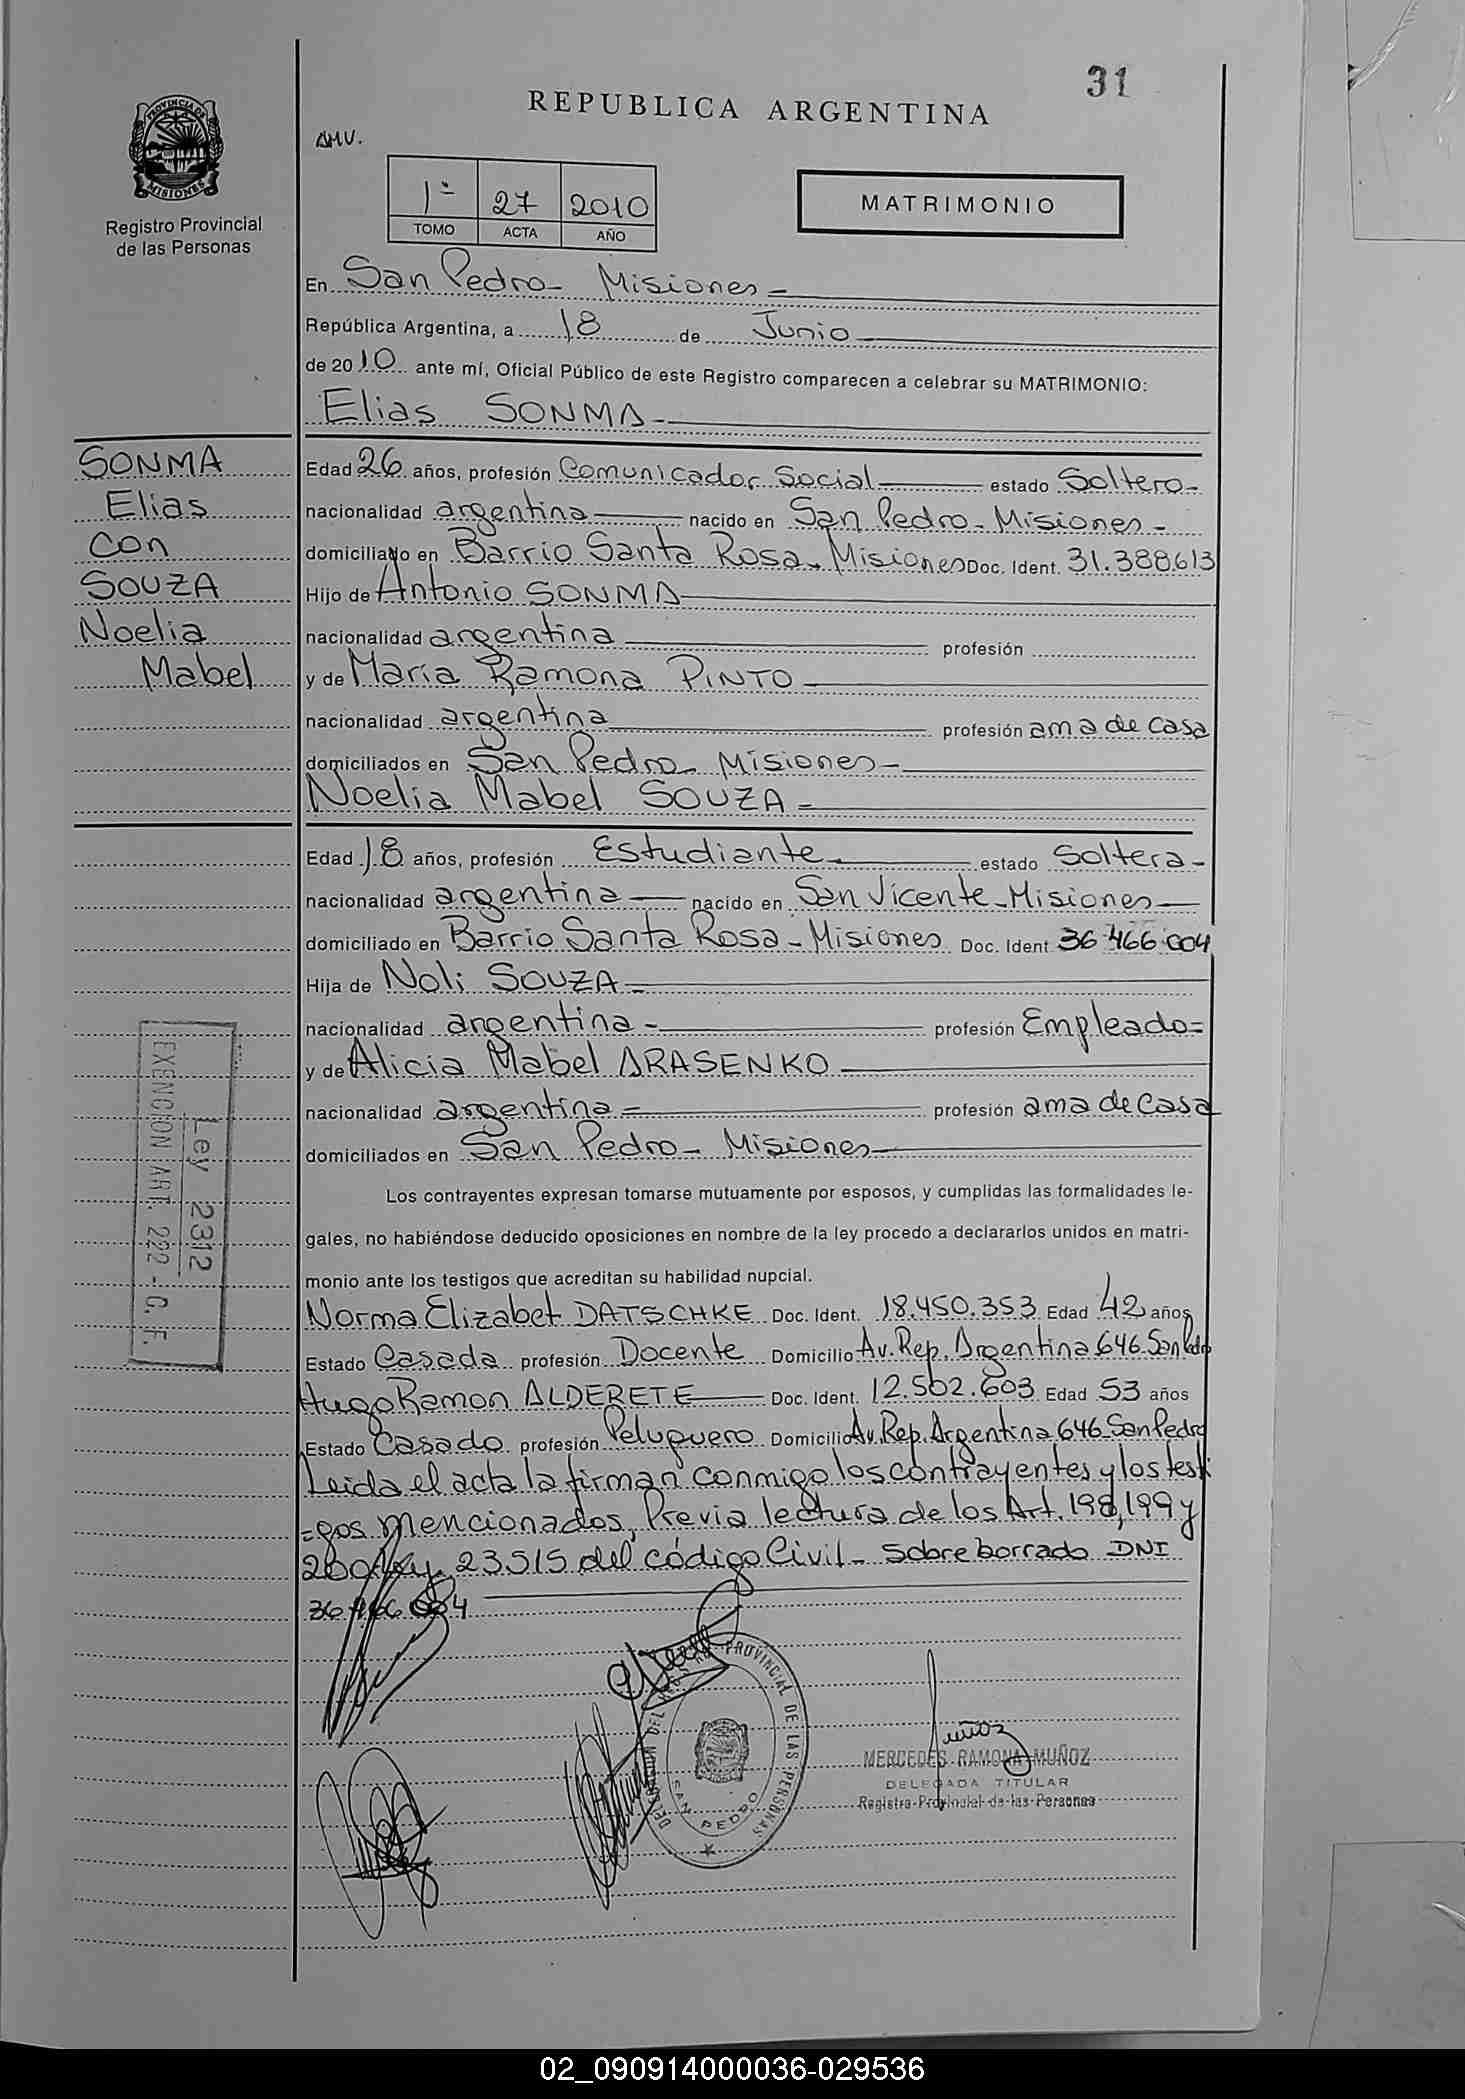 31
REPUBLICA ARGENTINA
PROVINCIA DE
MISIONES
Registro Provincial
de las Personas
AMV.
1º 27 2010
TOMO ACTA AÑO
MATRIMONIO
En San Pedro- Misiones-
República Argentina, a 18 de Junio
de 2010 ante mí, Oficial Público de este Registro comparecen a celebrar su MATRIMONIO:
Elias SONMA-
SONMA
Elias
con
SOUZA
Noelia
Mabel
Edad 26 años, profesión Comunicador Social estado Soltero-
nacionalidad argentina nacido en San Pedro- Misiones-
domiciliado en Barrio Santa Rosa- Misiones Doc. Ident. 31.388.613
Hijo de Antonio SONMA
nacionalidad argentina profesión
y de Maria Ramona PINTO
nacionalidad argentina profesión ama de casa
domiciliados en San Pedro- Misiones-
Noelia Mabel SOUZA-
Edad 18 años, profesión Estudiante estado Soltera-
nacionalidad argentina nacido en San Vicente-Misiones
domiciliado en Barrio Santa Rosa- Misiones Doc. Ident 36.466.004
Hija de Noli SOUZA-
nacionalidad argentina- profesión Empleado-
y de Alicia Mabel ARASENKO
nacionalidad argentina- profesión ama de casa
domiciliados en San Pedro- Misiones
Ley 2312
EXENCION ART. 222 - C. F.
Los contrayentes expresan tomarse mutuamente por esposos, y cumplidas las formalidades le-
gales, no habiéndose deducido oposiciones en nombre de la ley procedo a declararlos unidos en matri-
monio ante los testigos que acreditan su habilidad nupcial.
Norma Elizabet DATSCHKE Doc. Ident. 18.450.353 Edad 42 años
Estado Casada profesión Docente Domicilio Av. Rep. Argentina 646 San Pedro
Hugo Ramon ALDERETE Doc. Ident. 12.502.603 Edad 53 años
Estado Casado profesión Peluquero Domicilio Av. Rep. Argentina 646 San Pedro
Leida el acta la firman conmigo los contrayentes y los testi
=gos mencionados, Previa lectura de los Art. 198, 199 y
200 Ley 23515 del código Civil- sobre borrado DNI
36 466 004
PROVINCIAL DE LAS PERSONAS
SAN PEDRO
Muñoz
MERCEDES RAMONA MUÑOZ
DELEGADA TITULAR
Registro Provincial de las Personas
02_090914000036-029536